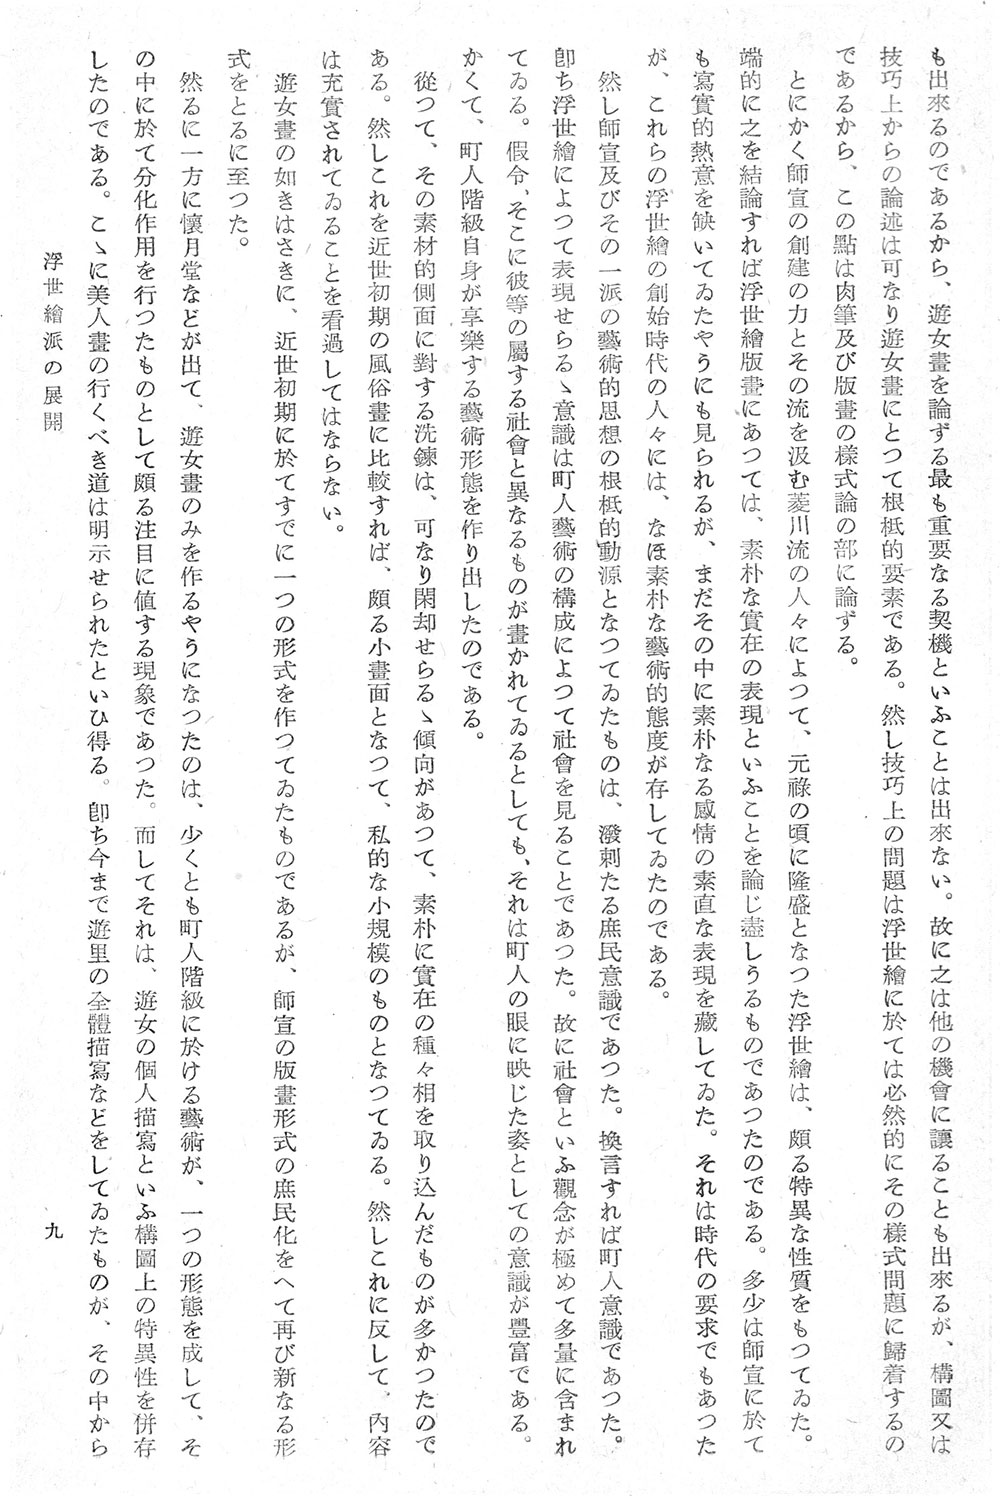 も出來るのであるから、遊女畫を論ずる最も重要なる契機といふことは出來ない。故に之は他の機會に讓ることも出來るが、構圖又は
技巧上からの論述は可なり遊女畫にとつて根柢的要素である。然し技巧上の問題は浮世繪に於ては必然的にその樣式問題に歸着するの
であるから、この點は肉筆及び版畫の樣式論の部に論ずる。
とにかく師宣の創建の力とその流を汲む菱川流の人々によつて、元祿の頃に隆盛となつた浮世繪は、頗る特異な性質をもつてゐた。
端的に之を結論すれば浮世繪版畫にあつては、素朴な實在の表現といふことを論じ盡しうるものであつたのである。多少は師宣に於て
も寫實的熱意を缺いてゐたやうにも見られるが、まだその中に素朴なる感情の素直な表現を藏してゐた。それは時代の要求でもあつた
が、これらの浮世繪の創始時代の人々には、なほ素朴な藝術的態度が存してゐたのである。
然し師宣及びその一派の藝術的思想の根柢的動源となつてゐたものは、潑剌たる庶民意識であつた。換言すれば町人意識であつた。
卽ち浮世繪によつて表現せらるゝ意識は町人藝術の構成によつて社會を見ることであつた。故に社會といふ觀念が極めて多量に含まれ
てゐる。假令、そこに彼等の屬する社會と異なるものが畫かれてゐるとしても、それは町人の眼に映じた姿としての意識が豐富である。
かくて、町人階級自身が享樂する藝術形態を作り出したのである。
從つて、その素材的側面に對する洗鍊は、可なり閑却せらるゝ傾向があつて、素朴に實在の種々相を取り込んだものが多かつたので
ある。然しこれを近世初期の風俗畫に比較すれば、頗る小畫面となつて、私的な小規模のものとなつてゐる。然しこれに反して、內容
は充實されてゐることを看過してはならない。
遊女畫の如きはさきに、近世初期に於てすでに一つの形式を作つてゐたものであるが、師宣の版畫形式の庶民化をへて再び新なる形
式をとるに至つた。
然るに一方に懷月堂などが出て、遊女畫のみを作るやうになつたのは、少くとも町人階級に於ける藝術が、一つの形態を成して、そ
の中に於て分化作用を行つたものとして頗る注目に値する現象であつた。而してそれは、遊女の個人描寫といふ構圖上の特異性を併存
したのである。こゝに美人畫の行くべき道は明示せられたといひ得る。卽ち今まで遊里の全體描寫などをしてゐたものが、その中から
浮世繪派の展開
九